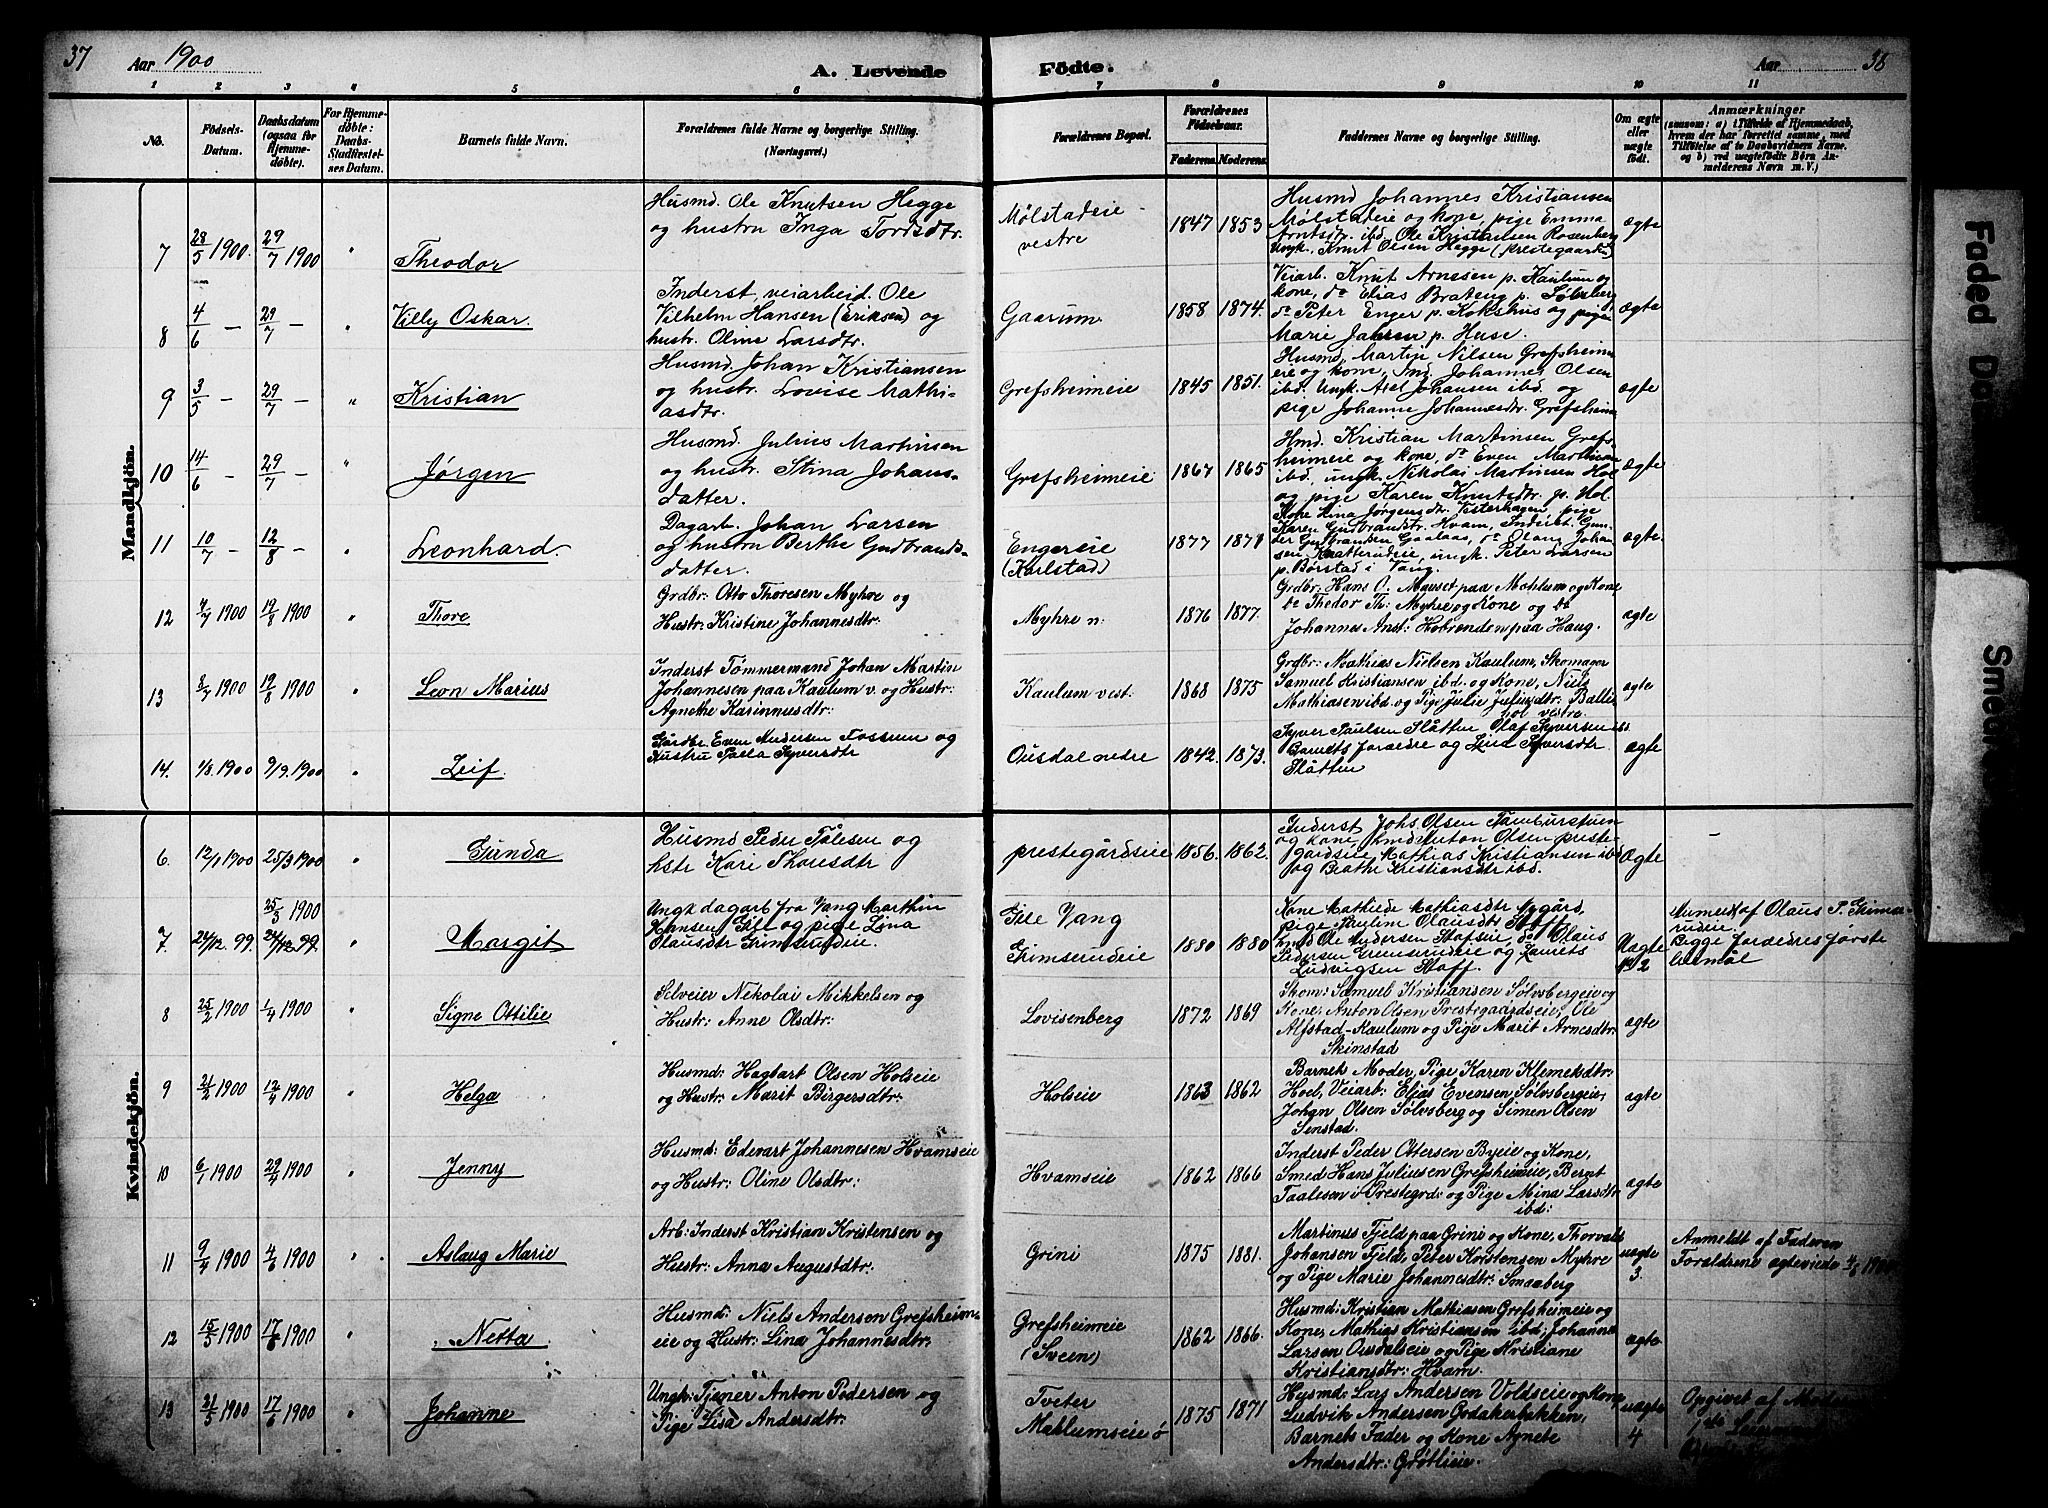 37
Aar 1900
A. Levende
Födte.
Aar
38
1 2 3 4 5 6 7 8 9 10 11
No.
Födsels-Datum.
Daabsdatum (ogsaa for Hjemmedöbte).
For Hjemmedöbte: Daabs-Stadfæstelses Datum.
Barnets fulde Navn.
Forældrenes fulde Navne og borgerlige Stilling.
(Næringsvei.)
Forældrenes Bopæl.
Forældrenes Födselsaar.
Faderens. Moderens.
Faddernes Navne og borgerlige Stilling.
Om ægte eller uægte födt.
Anmærkninger
(saasom: a) i Tilfælde af Hjemmedaab, hvem der har forrettet samme, med Tilföielse af to Daabsvidners Navne. og b) ved uægtefödte Börn Anmelderens Navn m. V.)
Mandkjön.
7 28/5 1900. 29/7 1900 " Theodor
Husmd. Ole Knutsen Hegge
og hustru Inga Tordsdtr.
Mølstadeie
vestre
1847 1853
Husmd Johannes Kristiansen
Mølstadeie og kone, pige Emma
Arntsdtr. ibd. Ole Kristiansen Rosenberg
Ungk. Knut Olsen Hegge (prestegaard)
ægte
8 4/6 — 29/7 — " Villy Oskar.
Inderst, veiarbeid. Ole
Vilhelm Hansen (Eriksen) og
hustr. Oline Larsdtr.
Gaarum.
1858 1874.
Veiarb. Knut Arnesen p. Kaulum og
kone, do Elias Brateng p. Sølvsberg
do Peter Enger p. Kokshus og pige
Marie Jansen p. Huse.
ægte
9 3/5 — 29/7 — " Kristian
Husmd. Johan Kristiansen
og hustr. Lovise Mathi-
asdtr.
Grefsheimeie
1845 1851.
Husmd. Martin Nilsen Grefsheim
eie og kone, Ind. Johannes Olsen
ibd. Ungk. Axel Johansen ibd og
pige Johanne Johannesdtr. Grefsheim
ægte
10 14/6 — 29/7 — " Jørgen
Husmd. Julius Martinsen
og hustr. Stina Johans-
datter.
Grefsheimeie
1867 1865
Hmd. Kristian Martinsen Grefs-
heimeie og kone, do Even Marthinsen
ibd, ungk. Nikolai Martinsen Hol
og pige Karen Knutsdtr. p. Hol.
ægte
11 10/7 — 12/8 — " Leonhard.
Dagarb. Johan Larsen
og hustru Berthe Gudbrands-
datter.
Engereie
(Karlstad)
1877 1871
Kone Hina Jørgensdtr. Vesterhagen, pige
Karen Gudbrandstr. Hvam, Inderst. Gun-
der Gulbrandsen Gaalaas, do Olaus Johan-
sen Knatterudeie, ungk. Peter Larsen
p. Børstad i Vang.
ægte.
12 4/7 1900 19/8 1900 " Thore
Grdbr: Otto Thoresen Myhre og
Hustr: Kristine Johannesdtr:
Myhre n:
1876 1877.
Grdbr: Hans O. Mauset paa Mahlum og Kone
do Thedor Th: Myhre og Kone og do
Johannes Anst: Hobrenden paa Haug.
ægte
13 8/7 1900 19/8 1900 " Leon Marius
Inderst Tømmermand Johan Martin
Johannesen paa Kaulum v. og Hustr:
Agnethe Karinnusdtr:
Kaulum vest.
1868 1875
Grdbr: Mathias Nielsen Kaulum, Skomager
Samuel Kristiansen ibd. og Kone, Niels
Mathiasen ibd. og Pige Julie Juliusdtr: Ballis-
hol vestre
ægte
14. 1/8. 1900 9/9. 1900 " Leif.
Gårdbr. Even Andersen Fossum og
Hustru Paella Syversdtr
Ousdal nedre
1842. 1873.
Syver Paulsen Slåtten Olaf Syversen ibd.
Barnets forældre og Lina Syversdtr
Slåtten
ægte
Kvindekjön.
6. 12/1 1900 25/3 1900 " Gunda
Husmd Peder Tølesen og
hstr Kari Thoresdtr
prestegårdseie
1856. 1862.
Inderst Johs Olsen Tamburstuen
og kone, Husmd Anton Olsen preste-
gardseie Mathias Kristiansen ibd
og Beathe Kristiansdtr ibd.
Ægte
7. 24/12. 99. 25/3 1900 24/12 99. " Margit
Ungk dagarb fra Vang Marthin
Hansen Gile og pige Lina
Olausdtr Grimserudeie.
Gile Vang
Grimserudeie
1880 1880
Kone Mathilde Mathiasdtr Nygård,
pige Pauline Olausdtr Staff,
Husmd Ole Andersen Stafseie, do Olaus
Pedersen Grimserudeie og Laurits
Ludvigsen Staff.
Uægte
No 2
Anmeldt af Olaus P. Grimse-
rudeie.
Begge forældres første
leiermål
8 25/2 1900 1/4 1900 " Signe Ottilie
Selveier Nekolai Mikkelsen og
Hustr: Anne Olsdtr:
Lovisenberg
1872 1869
Skom: Samuel Kristiansen Sølvsbergeie og
Kone, Anton Olsen Prestegaardseie, Ole
Alfstad-Kaulum og Pige Marit Arnesdtr:
Skinstad
ægte
9 21/2 1900 12/4 1900 " Helga
Husmd: Hagbart Olsen Holseie
og Hustr: Marit Birgersdtr:
Holseie
1863 1862
Barnets Moder, Pige Karen Klemetsdtr:
Hoel, Veiarb: Elias Evensen Sølvsbergeie,
Johan Olsen Sølvsberg og Simen Olsen
Senstad.
ægte
10 6/1 1900 29/4 1900 " Jenny
Husmd: Edevart Johannesen Hvamseie
og Hustr: Oline Olsdtr:
Hvamseie
1862 1866
Inderst Peder Ottersen Byeie og Kone,
Smed Hans Juliusen Grefsheimeie, Bernt
Taalesen i Prestegrd: og Pige Mina Larsdtr
ibd:
ægte
11 9/4 1900 4/6 1900 " Aslaug Marie
Arb: Inderst Kristian Kristensen og
Hustr: Anna Augustdtr:
Grini
1875 1881.
Martinus Fjeld paa Grini og Kone, Thorvald
Johansen Fjeld, Peter Kristensen Myhre
og Pige Marie Johannesdtr: Smaaberg
uægte
3.
Anmeldt af Faderen
Forældrene ægteviede 4/6 1900
12 15/5 1900 17/6 1900 " Netta
Husmd: Niels Andersen Grefsheim-
eie og Hustr: Lina Johannesdtr:
Grefsheimeie
(Sveen)
1862 1866.
Husmd: Kristian Mathiasen Grefsheimeie og
Kone, Mathias Kristiansen ibd; Johannes
Larsen Ousdalseie og Pige Kristiane
Kristiansdtr: Hvam.
ægte
13 21/5 1900 17/6 1900 " Johanne
Ungk: Tjener Anton Pedersen og
Pige Lisa Andersdtr:
Tveter
Mahlumseie ø
1875 1871
Husmd: Lars Andersen Voldseie og Kone
Ludvik Andersen Godakerbakken,
Barnets Fader og Kone Agnete
Andersdtr: Grøtlieie.
uægte
4
Opgivet af
Faded Do
Smet